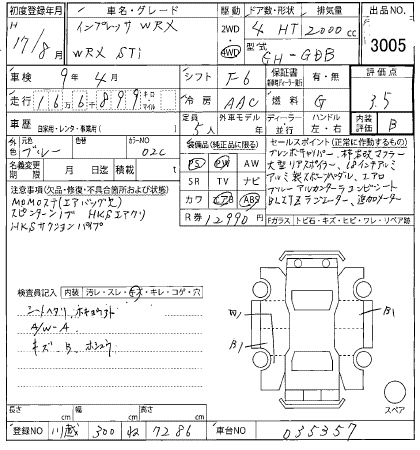 初度登録年月 車名・グレード 駆動 ドア数・形状 排気量 出品NO.
H 17/8月 インプレッサ WRX 2WD 4 HT 2000cc 3005
WRX STi 4WD 型式 GH-GDB
車検 9年 4月 シフト F-6 保証書 有・無 評価点
走行 166899 キロ マイル 冷房 AAC 燃料 G 3.5
車歴 自家用・レンタ・事業用( ) 定員 5人 外車モデル 年 ディーラー・並行 ハンドル 左・右 内装評価 B
外色 元色 ブルー 色替 カラーNO 02C 装備品(純正品に限る) セールスポイント(正常に作動するもの)
名義変更期限 月 日 積載 PS PW AW ブレンボキャリパー、柿本改マフラー
リサイクル預託金 月 日済 SR TV ナビ 大型リアスポイラー、18インチアルミ
注意事項(欠品・修復・不具合箇所および状態) カワ エアB ABS アルミ製スポーツペダル、エアロ
MOMOステ(エアバッグ欠) R券 12990円 ブルーアルカンターラコンビシート
スピンターンノブ HKSエアクリ BLITZラジエーター、追加メーター
HKSサクションパイプ Fガラス トビ石・キズ・ヒビ・ワレ・リペア跡
検査員記入 内装 汚レ・スレ・キズ・キレ・コゲ・穴
シートヘタリ
A/W-A
キズ B
W1 B1 B1
スペア
長さ cm 幅 cm 高さ cm
登録NO 川越 300 ね 7286 車台NO 035357